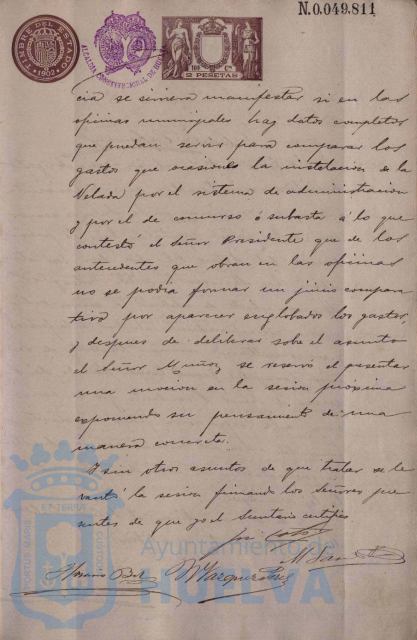 N.0.049.811
TIMBRE DEL ESTADO
1902
ALCALDIA CONSTITUCIONAL DE HUELVA
2 PESETAS
cia se sirviera manifestar si en las
oficinas municipales hay datos completos
que puedan servir para comparar los
gastos que ocasione la instalacion de la
Velada por el sistema de administracion
y por el de concurso ó subasta á lo que
contestó el Señor Presidente que de los
antecedentes que obran en las oficinas
no se podia formar un juicio compara
tivo por aparecer englobados los gastos,
y despues de deliberar sobre el asunto
el Señor Muñoz se reservó el presentar
una mocion en la sesion próxima
exponiendo su pensamiento de una
manera concreta.
Y sin otros asuntos de que tratar se le
vantó la sesion firmando los Señores pre
sentes de que yo el Secretario certifico
PORTUS MARIS ET TERRAE CUSTODIA
Ayuntamiento de
HUELVA